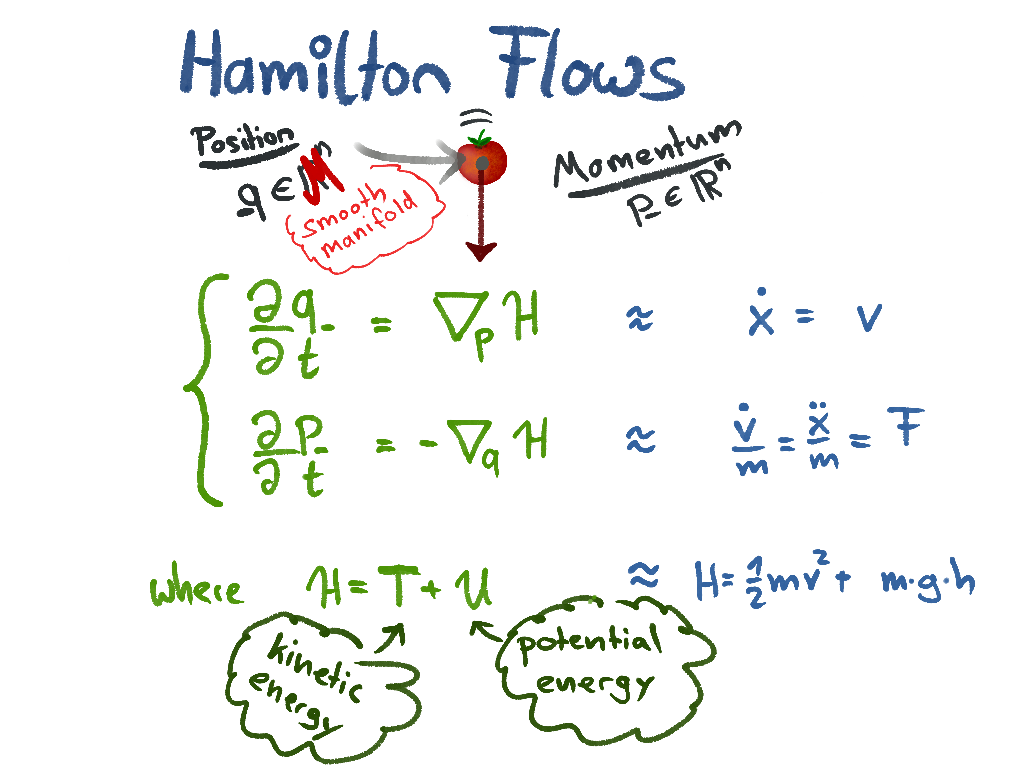 Hamilton Flows
Position
q ∈ ℝⁿ M
smooth
manifold
Momentum
p ∈ ℝⁿ
∂q/∂t = ∇ₚ H ≈ ẋ = v
∂p/∂t = - ∇q H ≈ v̇/m = ẍ/m = F
where H = T + U ≈ H = 1/2 mv² + m·g·h
kinetic
energy
potential
energy